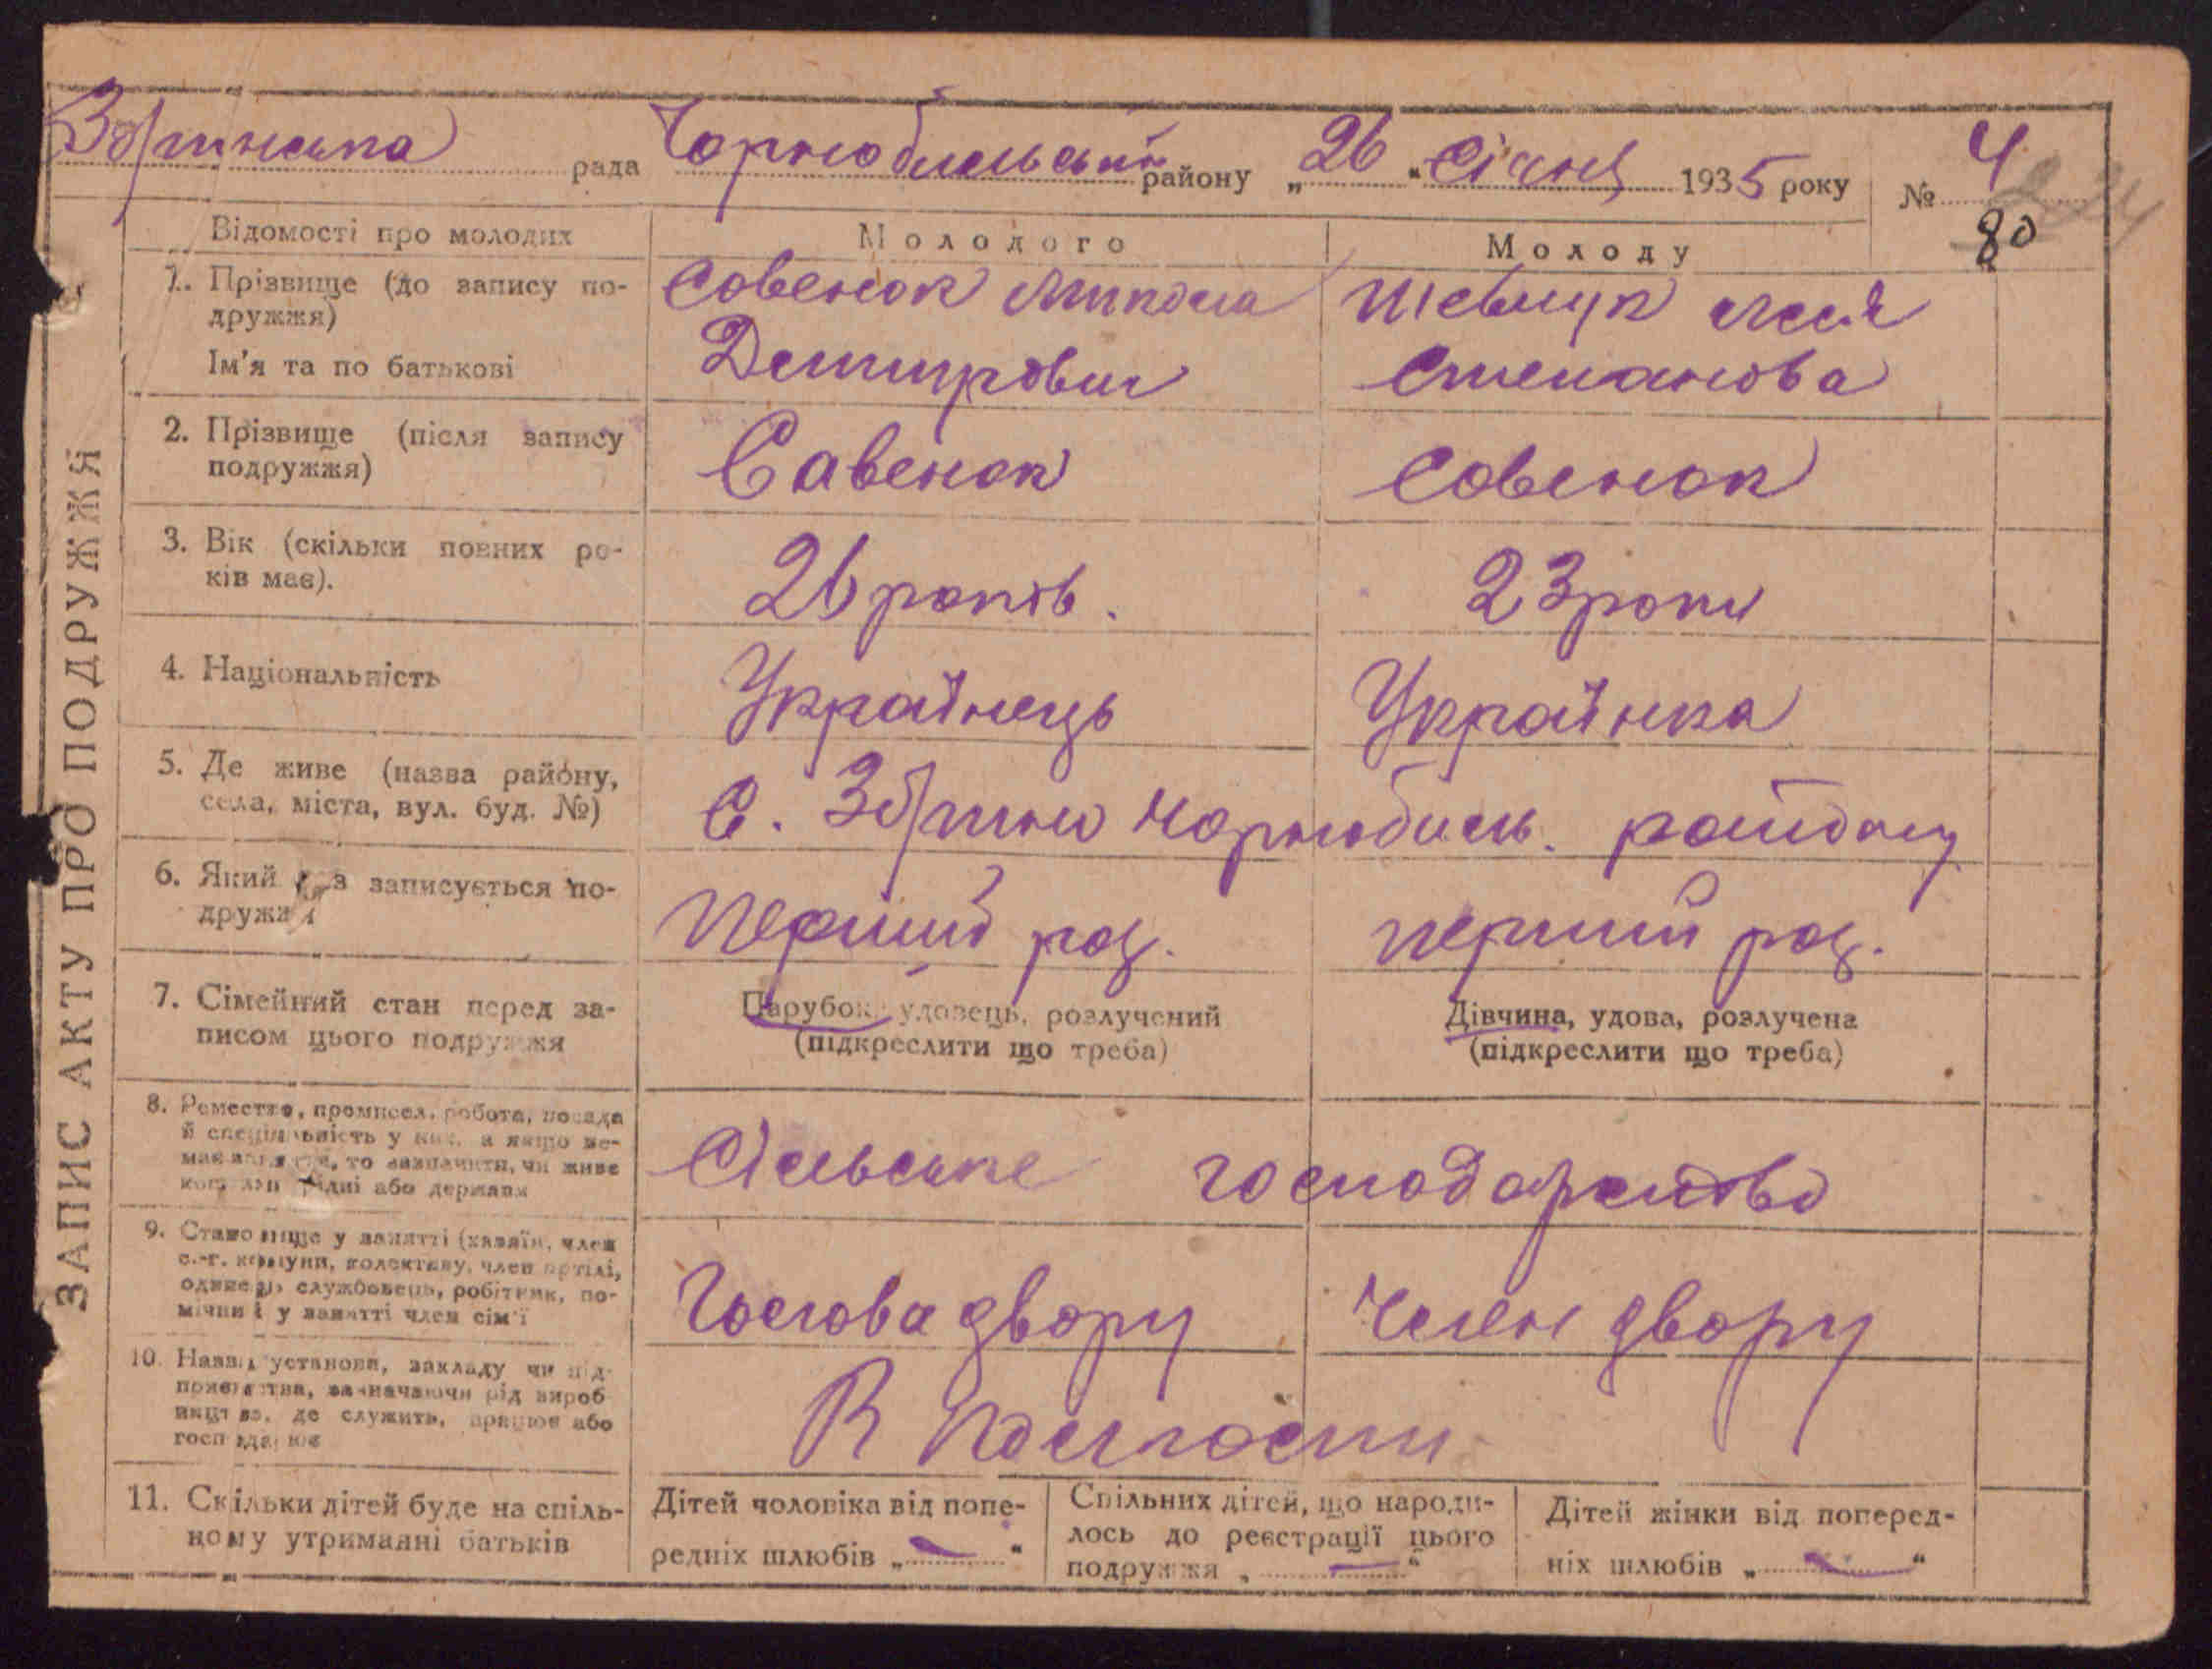 Зоринська рада Чорнобильський району „26“ Січня 1935 року № 4
80
ЗАПИС АКТУ ПРО ПОДРУЖЖЯ
Відомості про молодих
Молодого
Молоду
1. Прізвище (до запису по-
дружжя)
Ім'я та по батькові
Совенок Микола
Дмитрович
Шевчук
Степанова
2. Прізвище (після запису
подружжя)
Савенок
Совенок
3. Вік (скільки повних ро-
ків має).
26 років.
23 роки
4. Національність
Українець
Українка
5. Де живе (назва району,
села, міста, вул. буд. №)
С. Зорини Чорнобиль. району
6. Який раз записується по-
дружжя
Перший раз.
перший раз.
7. Сімейний стан перед за-
писом цього подружжя
Парубок, удовець, розлучений
(підкреслити що треба)
Дівчина, удова, розлучена
(підкреслити що треба)
8. Ремество, промисел, робота, посада
й спеціяльність у них, а якщо не-
має заняття, то зазначити, чи живе
коштами рідні або держави
Сільське господарство
9. Становище у занятті (хазяїн, член
с.-г. комуни, колективу, член артілі,
одинець, службовець, робітник, по-
мічний у занятті член сім'ї
Голова двору
Член двору
10. Назва установи, закладу чи під-
приємства, зазначаючи рід вироб-
ництва, де служить, працює або
господарює
В Колгоспи
11. Скільки дітей буде на спіль-
ному утриманні батьків
Дітей чоловіка від попе-
редніх шлюбів „—“
Спільних дітей, що народи-
лось до реєстрації цього
подружжя „—“
Дітей жінки від поперед-
ніх шлюбів „—“